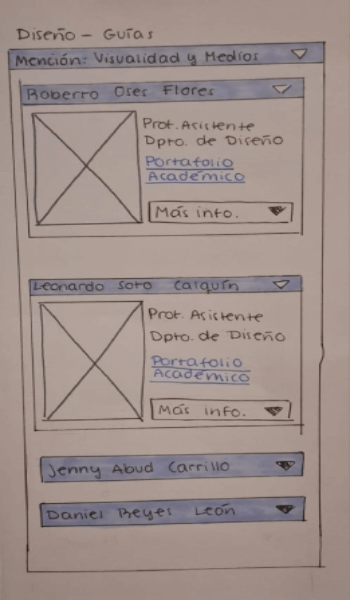 Diseño - Guías
Mención: Visualidad y Medios
Roberto Oses Flores
Prof. Asistente
Dpto. de Diseño
Portafolio
Académico
Más info.
Leonardo Soto Calquín
Prof. Asistente
Dpto. de Diseño
Portafolio
Académico
Más info.
Jenny Abud Carrillo
Daniel Reyes León